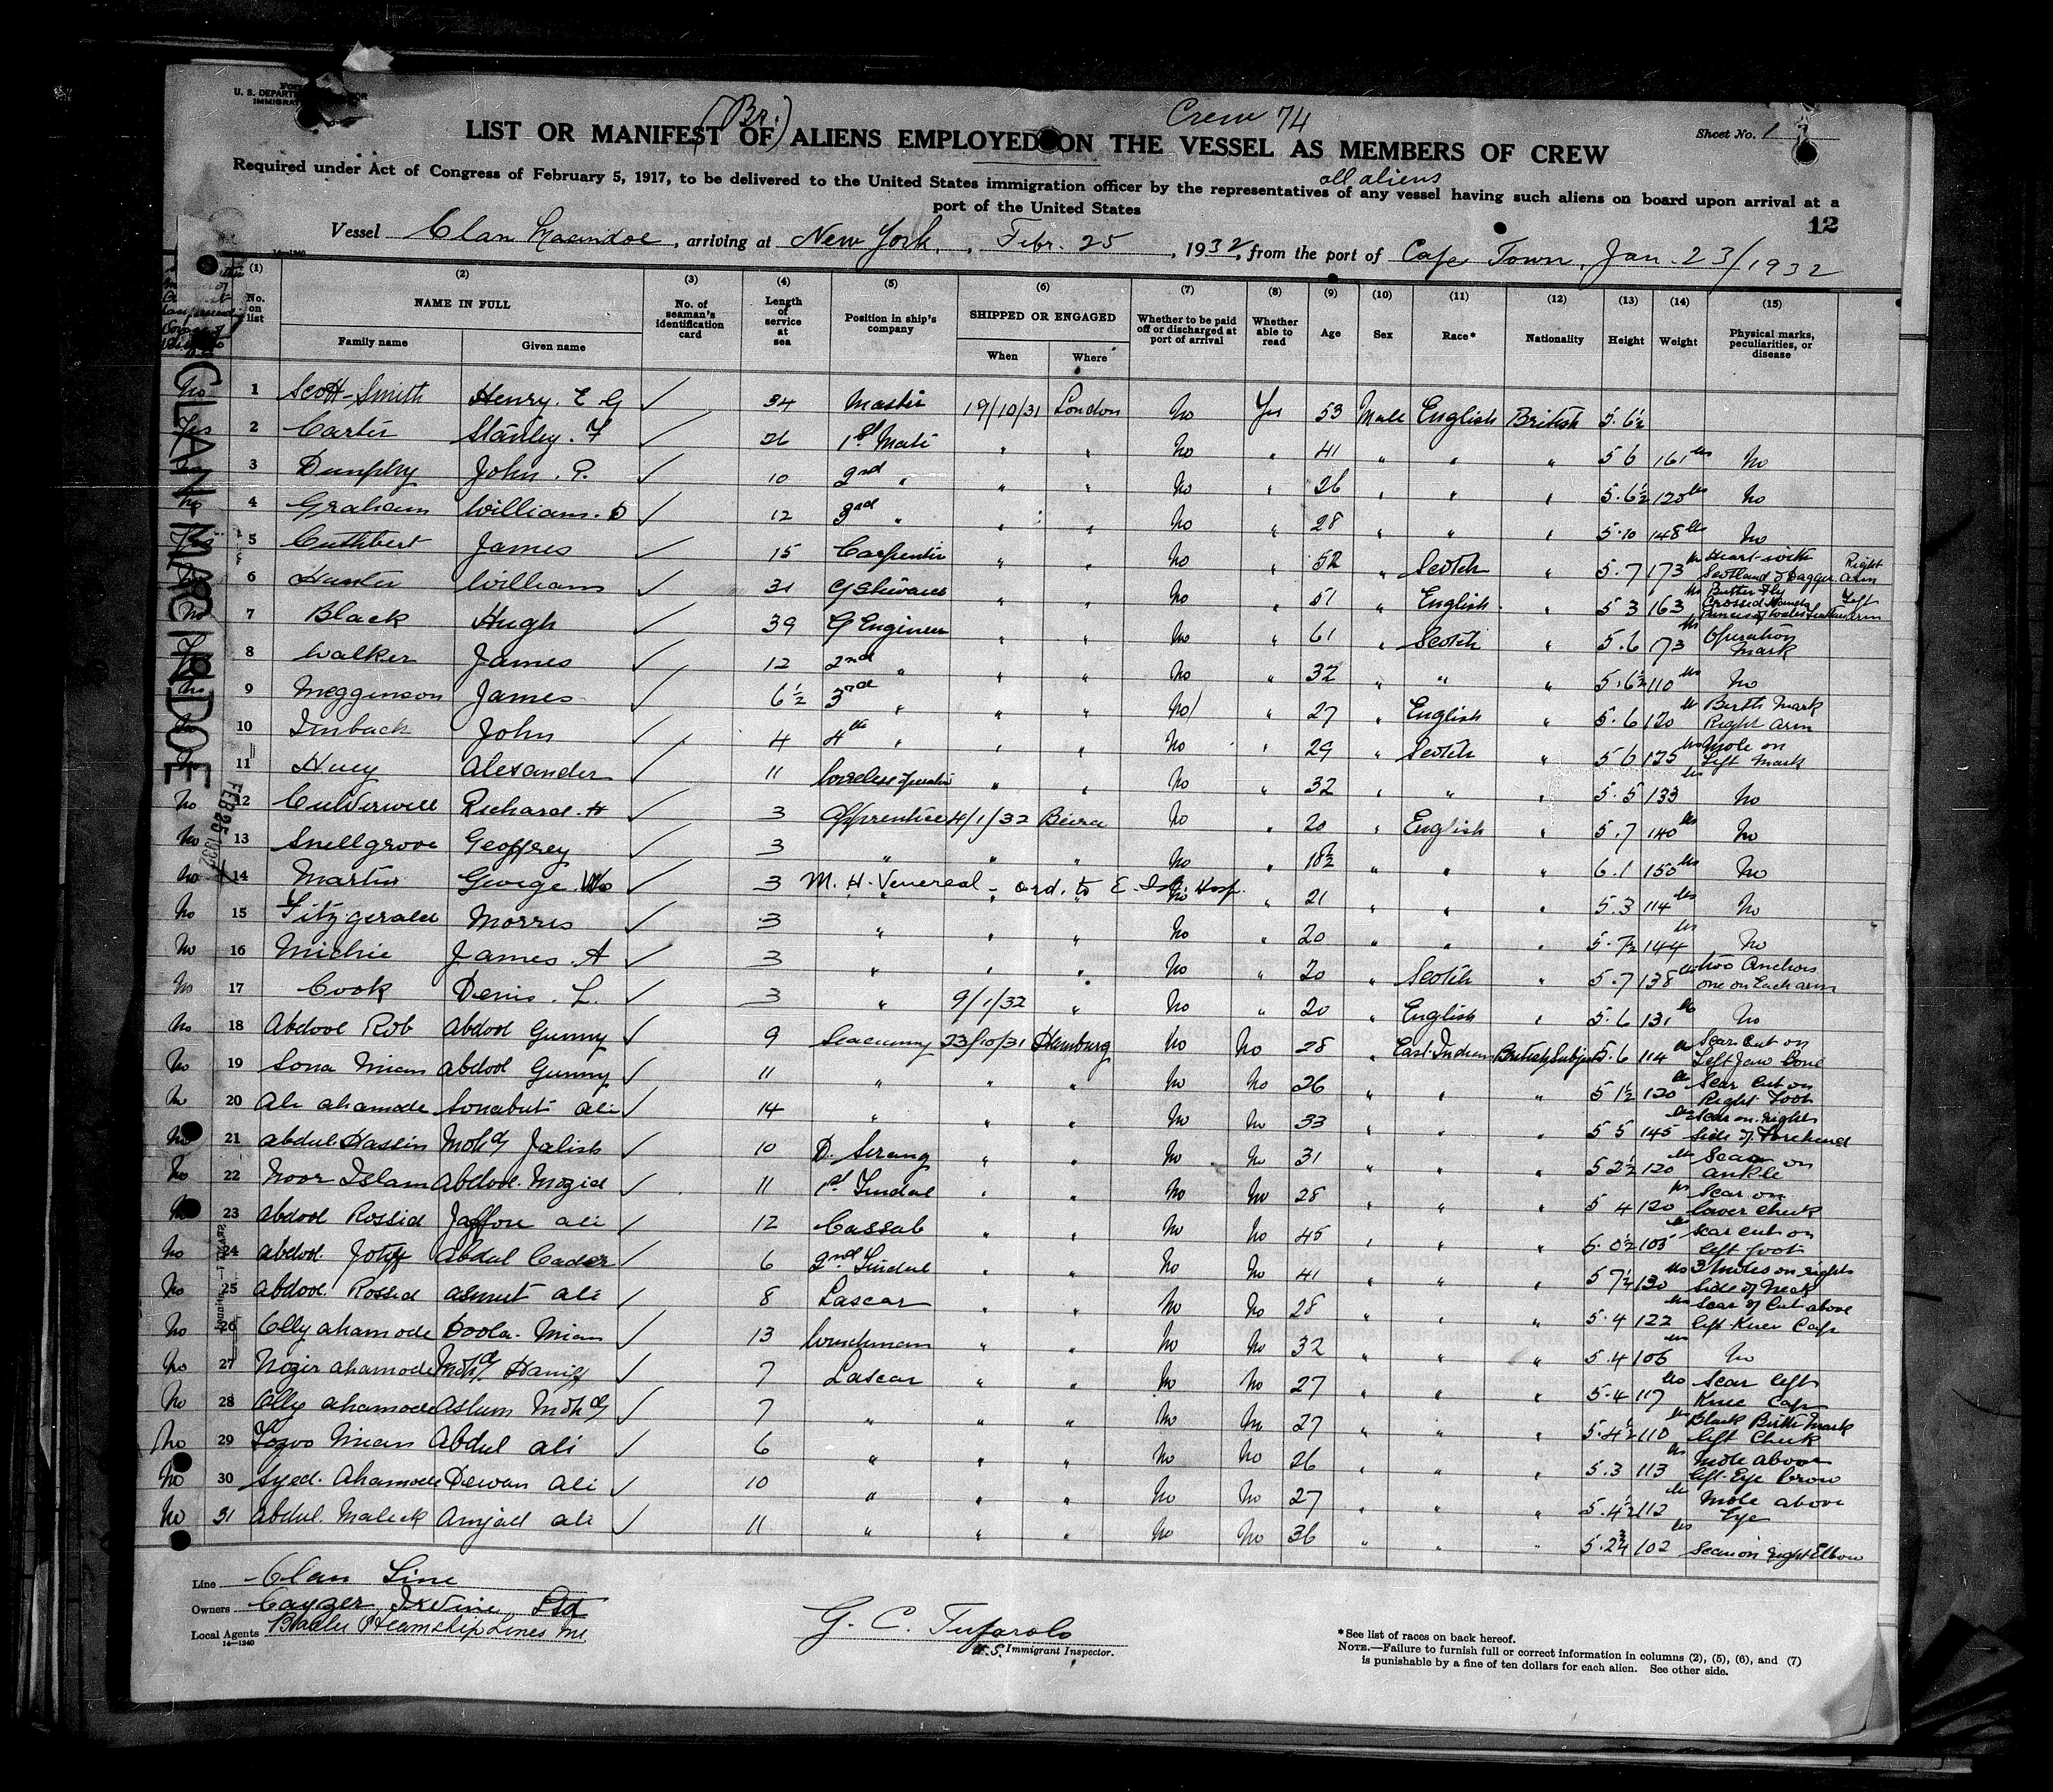 Form
U. S. DEPARTMENT OF LABOR
IMMIGRATION
(Br.)
Crew 74
Sheet No. 1
LIST OR MANIFEST OF ALIENS EMPLOYED ON THE VESSEL AS MEMBERS OF CREW
all aliens
Required under Act of Congress of February 5, 1917, to be delivered to the United States immigration officer by the representatives of any vessel having such aliens on board upon arrival at a
port of the United States
12
Vessel Clan Macindoe, arriving at New York, Febr. 25, 1932, from the port of Cape Town, Jan. 23/1932
14-1240
(1) (2) (3) (4) (5) (6) (7) (8) (9) (10) (11) (12) (13) (14) (15)
No. on list NAME IN FULL No. of seaman's identification card Length of service at sea Position in ship's company SHIPPED OR ENGAGED Whether to be paid off or discharged at port of arrival Whether able to read Age Sex Race* Nationality Height Weight Physical marks, peculiarities, or disease
Family name Given name When Where
CLAN MACINDOE
FEB 25 1932
No 1 Scott-Smith Henry. E G ✓ 34 Master 19/10/31 London No Yes 53 Male English British 5.6½
Yes 2 Carter Stanley. F ✓ 26 1st Mate " " No " 41 " " " 5 6 161 lbs No
3 Dunphy John. P. ✓ 10 2nd " " " No " 26 " " " 5.6½ 120 lbs No
No 4 Graham William. D ✓ 12 3rd " " " No " 28 " " " 5.10 148 lbs No
5 Cuthbert James ✓ 15 Carpenter " " No " 52 " Scotch " 5.7 173 lbs Heart with Scotland & Dagger. Right Arm
6 Hunter William ✓ 31 " " No " 51 " English " 5 3 163 lbs Butter Fly Crossed Left arm
No 7 Black Hugh ✓ 39 C Engineer " " No " 61 " Scotch " 5.6 173 lbs Operation Mark
8 Walker James ✓ 12 2nd " " " No " 32 " " " 5.6½ 110 lbs No
No 9 Megginson James ✓ 6½ 3rd " " " No " 27 " English " 5.6 120 lbs Birth Mark Right Arm
10 Imbach John ✓ 4 4th " " " No " 29 " Scotch " 5 6 125 lbs Mole on Left Mark
No 11 Huey Alexander ✓ 11 Wireless Operator " " No " 32 " " " 5.5 133 lbs No
No 12 Culverwell Richard. H ✓ 3 Apprentice 4/1/32 Beira No " 20 " English " 5.7 140 lbs No
No 13 Snellgrove Geoffrey ✓ 3 " " " No " 18½ " " " 6.1 150 lbs No
No 14 Martin George. Wm ✓ 3 M. H. Venereal - ord. to E. Isl. Hosp. No " 21 " " " 5.3 114 lbs No
No 15 Fitzgerald Morris ✓ 3 " " " No " 20 " " " 5.7½ 144 lbs No
No 16 Michie James. A ✓ 3 " " " No " 20 " Scotch " 5.7 138 lbs two Anchors one on Each arm
No 17 Cook Denis. L. ✓ 3 " 9/1/32 " No " 20 " English " 5.6 131 lbs No
No 18 Abdool Rob Abdool Gunny ✓ 9 Seacunny 23/10/31 Hamburg No No 28 " East-Indian British Subject 5.6 114 lbs Scar Cut on Left Jaw Bone
No 19 Sona Mian Abdool Gunny ✓ 11 " " " No No 26 " " " 5 1½ 120 lbs Scar Cut on Right Foot
No 20 Ali ahamode Sonabut ali ✓ 14 " " " No No 33 " " " 5 5 145 lbs Scar on right Side of Forehead
No 21 abdul Hassin Mohd Jalish ✓ 10 D. Serang " " No No 31 " " " 5 2½ 120 lbs Scar on ankle
No 22 Noor Islam Abdool. Mozid ✓ 11 1st Tindal " " No No 28 " " " 5 4 120 lbs Scar on lower cheek
No 23 Abdool Rossid Jaffor ali ✓ 12 Cassab " " No No 45 " " " 5.0½ 105 lbs Scar cut on left foot
No 24 abdool. Abdul Cader ✓ 6 2nd Tindal " " No No 41 " " " 5 7½ 130 lbs 3 Moles on right Side of Neck
No 25 abdool. Rossid asmut ali ✓ 8 Lascar " " No No 28 " " " 5.4 122 lbs Scar of Cut above left Knee Cap
No 26 Olly ahamode Doola. Mian ✓ 13 Winchman " " No No 32 " " " 5.4 106 lbs No
No 27 Nozir ahamode Mohd Hanif ✓ 7 Lascar " " No No 27 " " " 5.4 117 lbs Scar left Knee Cap
No 28 Olly ahamode Aslum Mohd ✓ 7 " " " No No 27 " " " 5.4½ 110 lbs Black Birth Mark left Cheek
No 29 Mian Abdul ali ✓ 6 " " " No No 26 " " " 5.3 113 lbs Mole above left-Eye brow
No 30 Syed. Ahamode Dewan ali ✓ 10 " " " No No 27 " " " 5.4½ 112 lbs Mole above Eye
No 31 Abdul. Maleck Amjad ali ✓ 11 " " " No No 36 " " " 5.2¾ 102 lbs Scar on right Elbow
Line Clan Line
Owners Cayzer Irvine Ltd
Local Agents Steamship Lines Inc
14-1240
G. C. Tufarolo
U.S. Immigrant Inspector.
*See list of races on back hereof.
NOTE.—Failure to furnish full or correct information in columns (2), (5), (6), and (7)
is punishable by a fine of ten dollars for each alien. See other side.